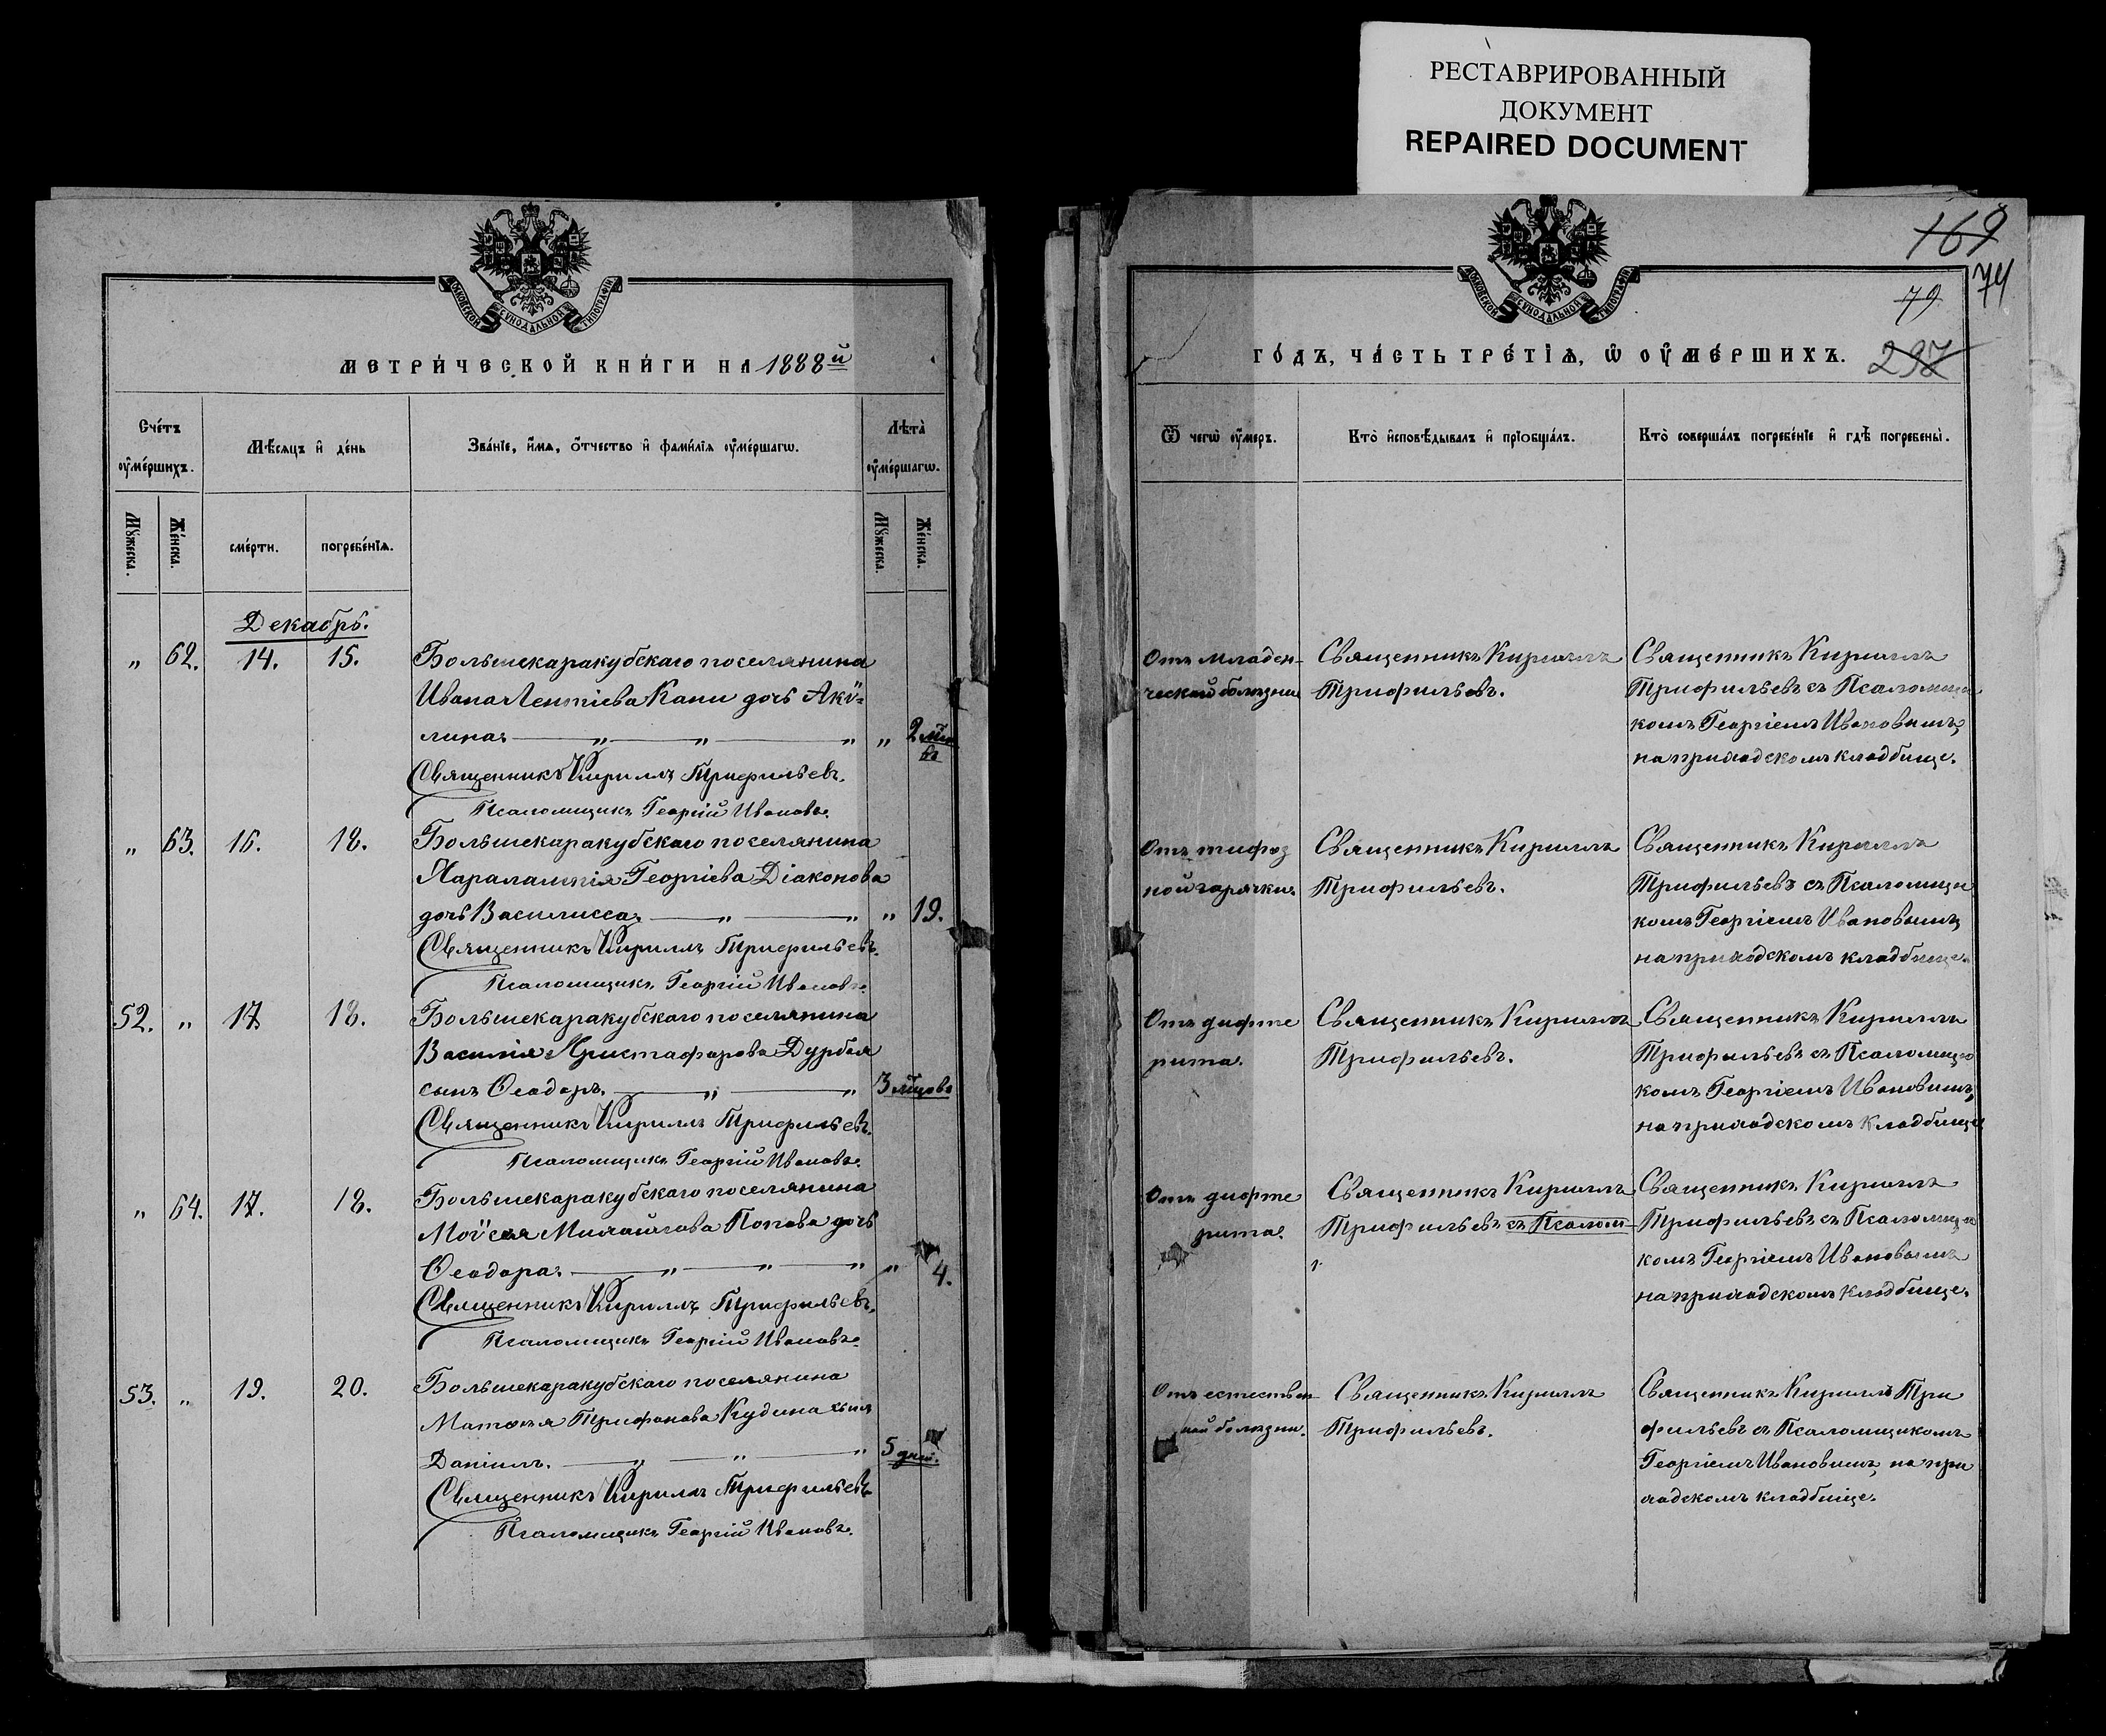 РЕСТАВРИРОВАННЫЙ
ДОКУМЕНТ
REPAIRED DOCUMENT
МОСКОВСКОЙ СѴНОДАЛЬНОЙ ТИПОГРАФІИ
МЕТРИ́ЧЕСКОЙ КНИ́ГИ НА 1888й
Сче́тъ ᲂу҆ме́ршихъ.
Мѣ́сяцъ и҆ де́нь
Зва́нїе, и҆́мѧ, ѻ҆́тчество и҆ фами́лїѧ ᲂу҆ме́ршагѡ.
Лѣ́та ᲂу҆ме́ршагѡ.
Мꙋ́жеска.
Же́нска.
сме́рти.
погребе́нїѧ.
Мꙋ́жеска.
Же́нска.
Декабрь.
„ 62. 14. 15. Большекаракубскаго поселянина
Ивана Леонтіева Кани дочь Акѵ-
лина. — „ — „ — „ „ 2 мѣв
Священникъ Кириллъ Трифильевъ.
Псаломщикъ Георгій Ивановъ.
„ 63. 16. 18. Большекаракубскаго поселянина
Харалампія Георгіева Діаконова
дочь Василисса. — „ — „ „ 19.
Священникъ Кириллъ Трифильевъ.
Псаломщикъ Георгій Ивановъ.
52. „ 17. 18. Большекаракубскаго поселянина
Василія Христафорова Дурбая
сынъ Ѳеодоръ. — „ — „ 3 мѣцовъ
Священникъ Кириллъ Трифильевъ.
Псаломщикъ Георгій Ивановъ.
„ 64. 17. 18. Большекаракубскаго поселянина
Моѵсея Михайлова Попова дочь
Ѳеодора. — „ — „ — „ „ 4.
Священникъ Кириллъ Трифильевъ.
Псаломщикъ Георгій Ивановъ.
53. „ 19. 20. Большекаракубскаго поселянина
Матѳея Трифонова Кудина сынъ
Даніилъ. — „ — „ — „ 5 дней.
Священникъ Кириллъ Трифильевъ
Псаломщикъ Георгій Ивановъ.
169
74
79
297
ГО́ДЪ, ЧА́СТЬ ТРЕ́ТЇѦ, Ѡ҆ ОУ҆МЕ́РШИХЪ.
Ѿ чегѡ̀ ᲂу҆́меръ.
Кто̀ и҆сповѣ́дывалъ и҆ прїѻбща́лъ.
Кто̀ соверша́лъ погребе́нїе и҆ гдѣ̀ погребены̀.
Отъ младен-
ческой болѣзни
Священникъ Кириллъ
Трифильевъ.
Священникъ Кириллъ
Трифильевъ съ Псаломщи
комъ Георгіемъ Ивановымъ,
на приходскомъ кладбище.
Отъ тифоз
ной горячки.
Священникъ Кириллъ
Трифильевъ.
Священникъ Кириллъ
Трифильевъ съ Псаломщи
комъ Георгіемъ Ивановымъ,
на приходскомъ кладбище.
Отъ дифте
рита.
Священникъ Кириллъ
Трифильевъ.
Священникъ Кириллъ
Трифильевъ съ Псаломщи
комъ Георгіемъ Ивановымъ,
на приходскомъ кладбище
Отъ дифте
рита.
Священникъ Кириллъ
Трифильевъ съ Псалом
Священникъ Кириллъ
Трифильевъ съ Псаломщи
комъ Георгіемъ Ивановымъ
на приходскомъ кладбище.
Отъ естествен
ной болѣзни.
Священникъ Кириллъ
Трифильевъ.
Священникъ Кириллъ Три
фильевъ съ Псаломщикомъ
Георгіемъ Ивановымъ, на при
ходскомъ кладбище.